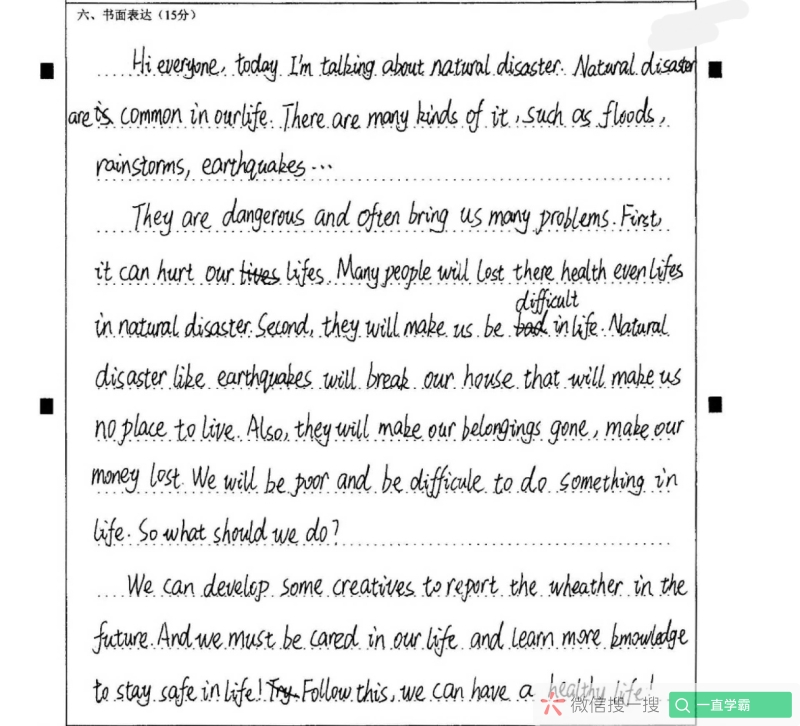 六、书面表达（15分）
Hi everyone, today I'm talking about natural disaster. Natural disaster
are is common in our life. There are many kinds of it, such as floods,
rainstorms, earthquakes...
They are dangerous and often bring us many problems. First,
it can hurt our lives lifes. Many people will lost there health even lifes
difficult
in natural disaster. Second, they will make us be bad in life. Natural
disaster like earthquakes will break our house that will make us
no place to live. Also, they will make our belongings gone, make our
money lost. We will be poor and be difficule to do something in
life. So what should we do?
We can develop some creatives to report the wheather in the
future. And we must be cared in our life and learn more kmowledge
to stay safe in life! Try. Follow this, we can have a healthy life!
微信搜一搜 一直学霸